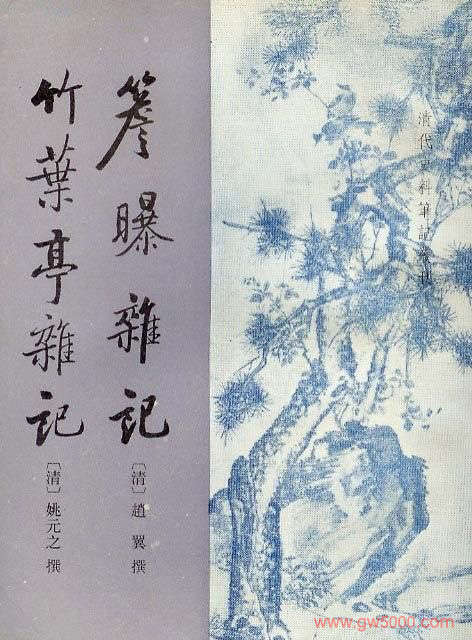 清代史料筆記叢刊
簷曝雜記
〔清〕趙翼 撰
竹葉亭雜記
〔清〕姚元之 撰
www.gw5000.com